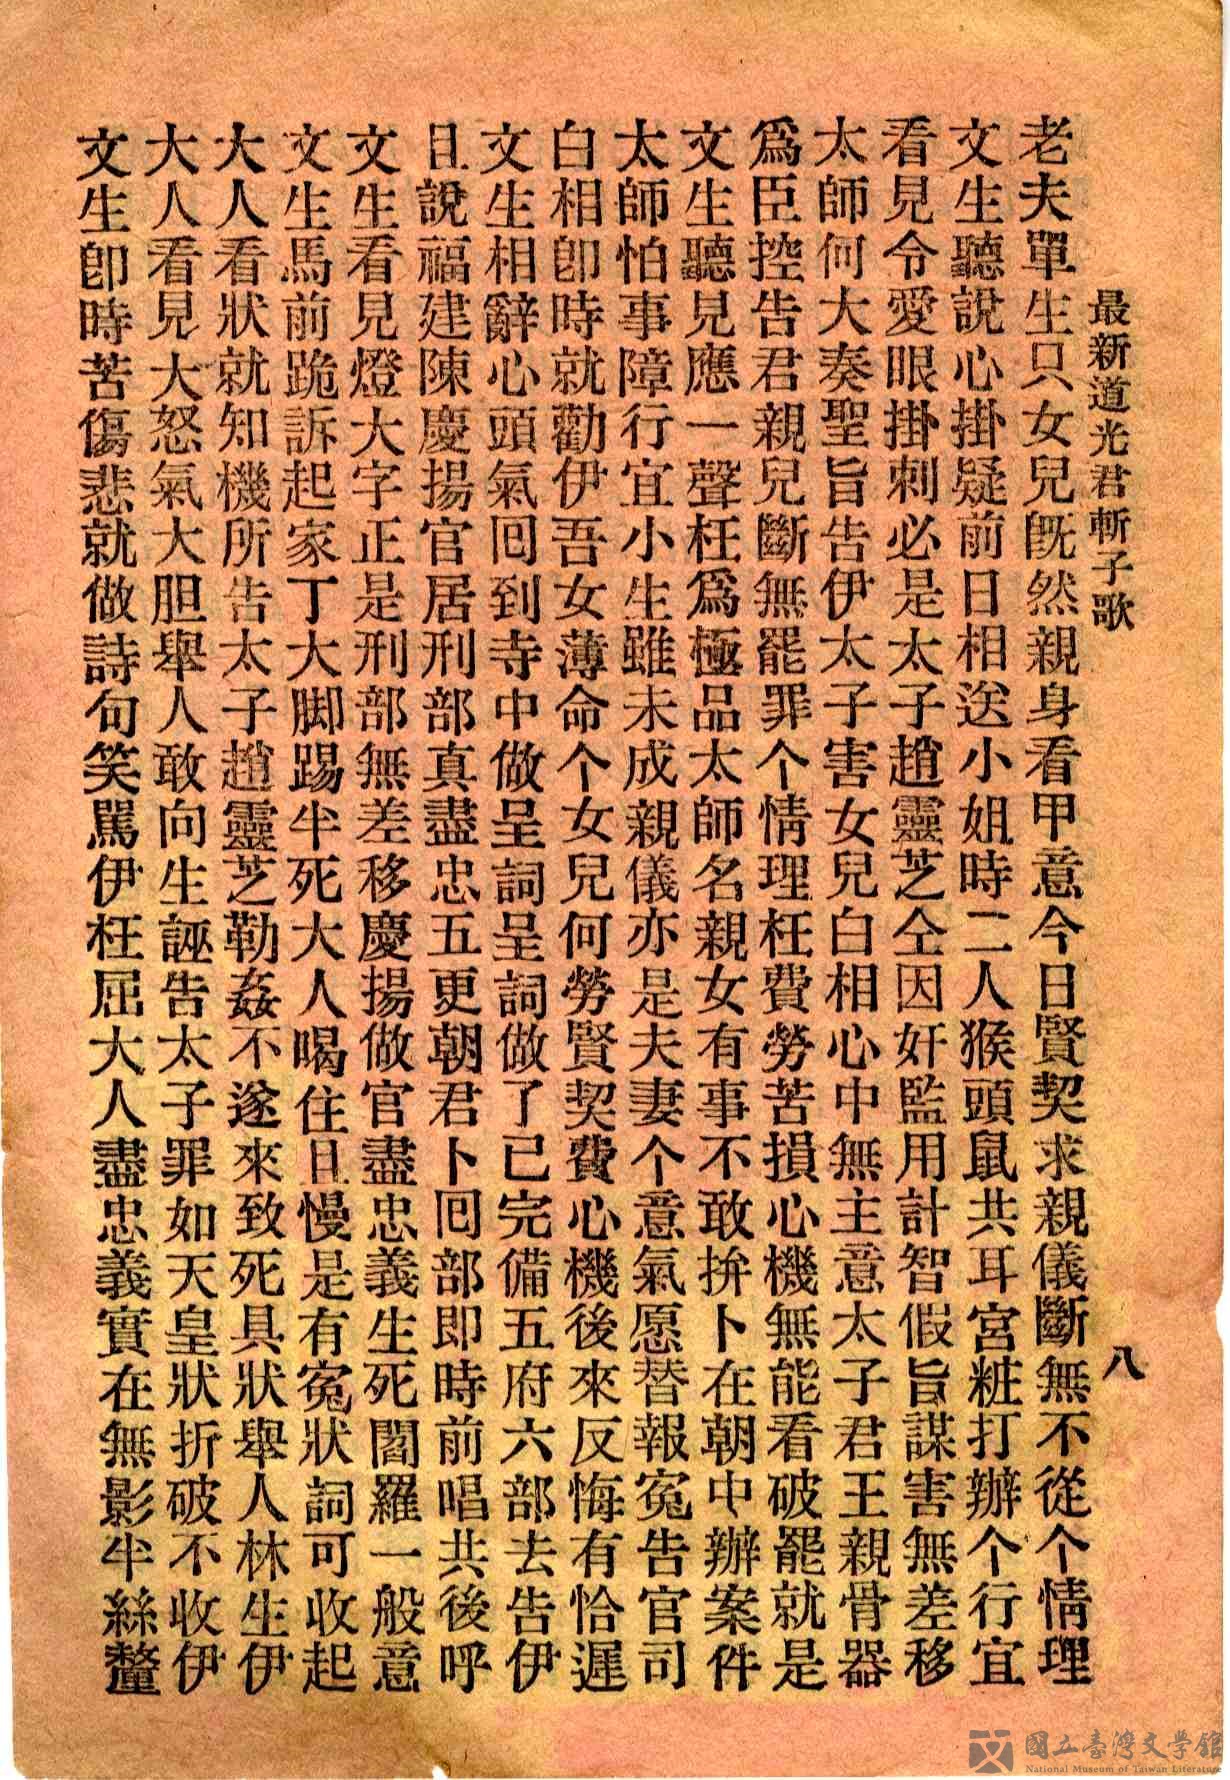 最新道光君斬子歌
八
老夫單生只女兒旣然親身看甲意今日賢契求親儀斷無不從个情理
文生聽說心掛疑前日相送小姐時二人猴頭鼠共耳宮粧打辦个行宜
看見令愛眼掛刺必是太子趙靈芝仝因奸監用計智假旨謀害無差移
太師何大奏聖旨告伊太子害女兒白相心中無主意太子君王親骨器
爲臣控告君親兒斷無罷罪个情理枉費勞苦損心機無能看破罷就是
文生聽見應一聲枉爲極品太師名親女有事不敢拚卜在朝中辦案件
太師怕事障行宜小生雖未成親儀亦是夫妻个意氣愿替報冤告官司
白相卽時就勸伊吾女薄命个女兒何勞賢契費心機後來反悔有恰遲
文生相辭心頭氣囘到寺中做呈詞呈詞做了已完備五府六部去告伊
且說福建陳慶揚官居刑部真盡忠五更朝君卜囘部即時前唱共後呼
文生看見燈大字正是刑部無差移慶揚做官盡忠義生死閻羅一般意
文生馬前跪訴起家丁大脚踢半死大人喝住且慢是有冤狀詞可收起
大人看狀就知機所告太子趙靈芝勒姦不遂來致死具狀舉人林生伊
大人看見大怒氣大胆舉人敢向生誣告太子罪如天皇狀折破不收伊
文生卽時苦傷悲就做詩句笑罵伊枉屈大人盡忠義實在無影半絲釐
國立臺灣文學館
National Museum of Taiwan Literature